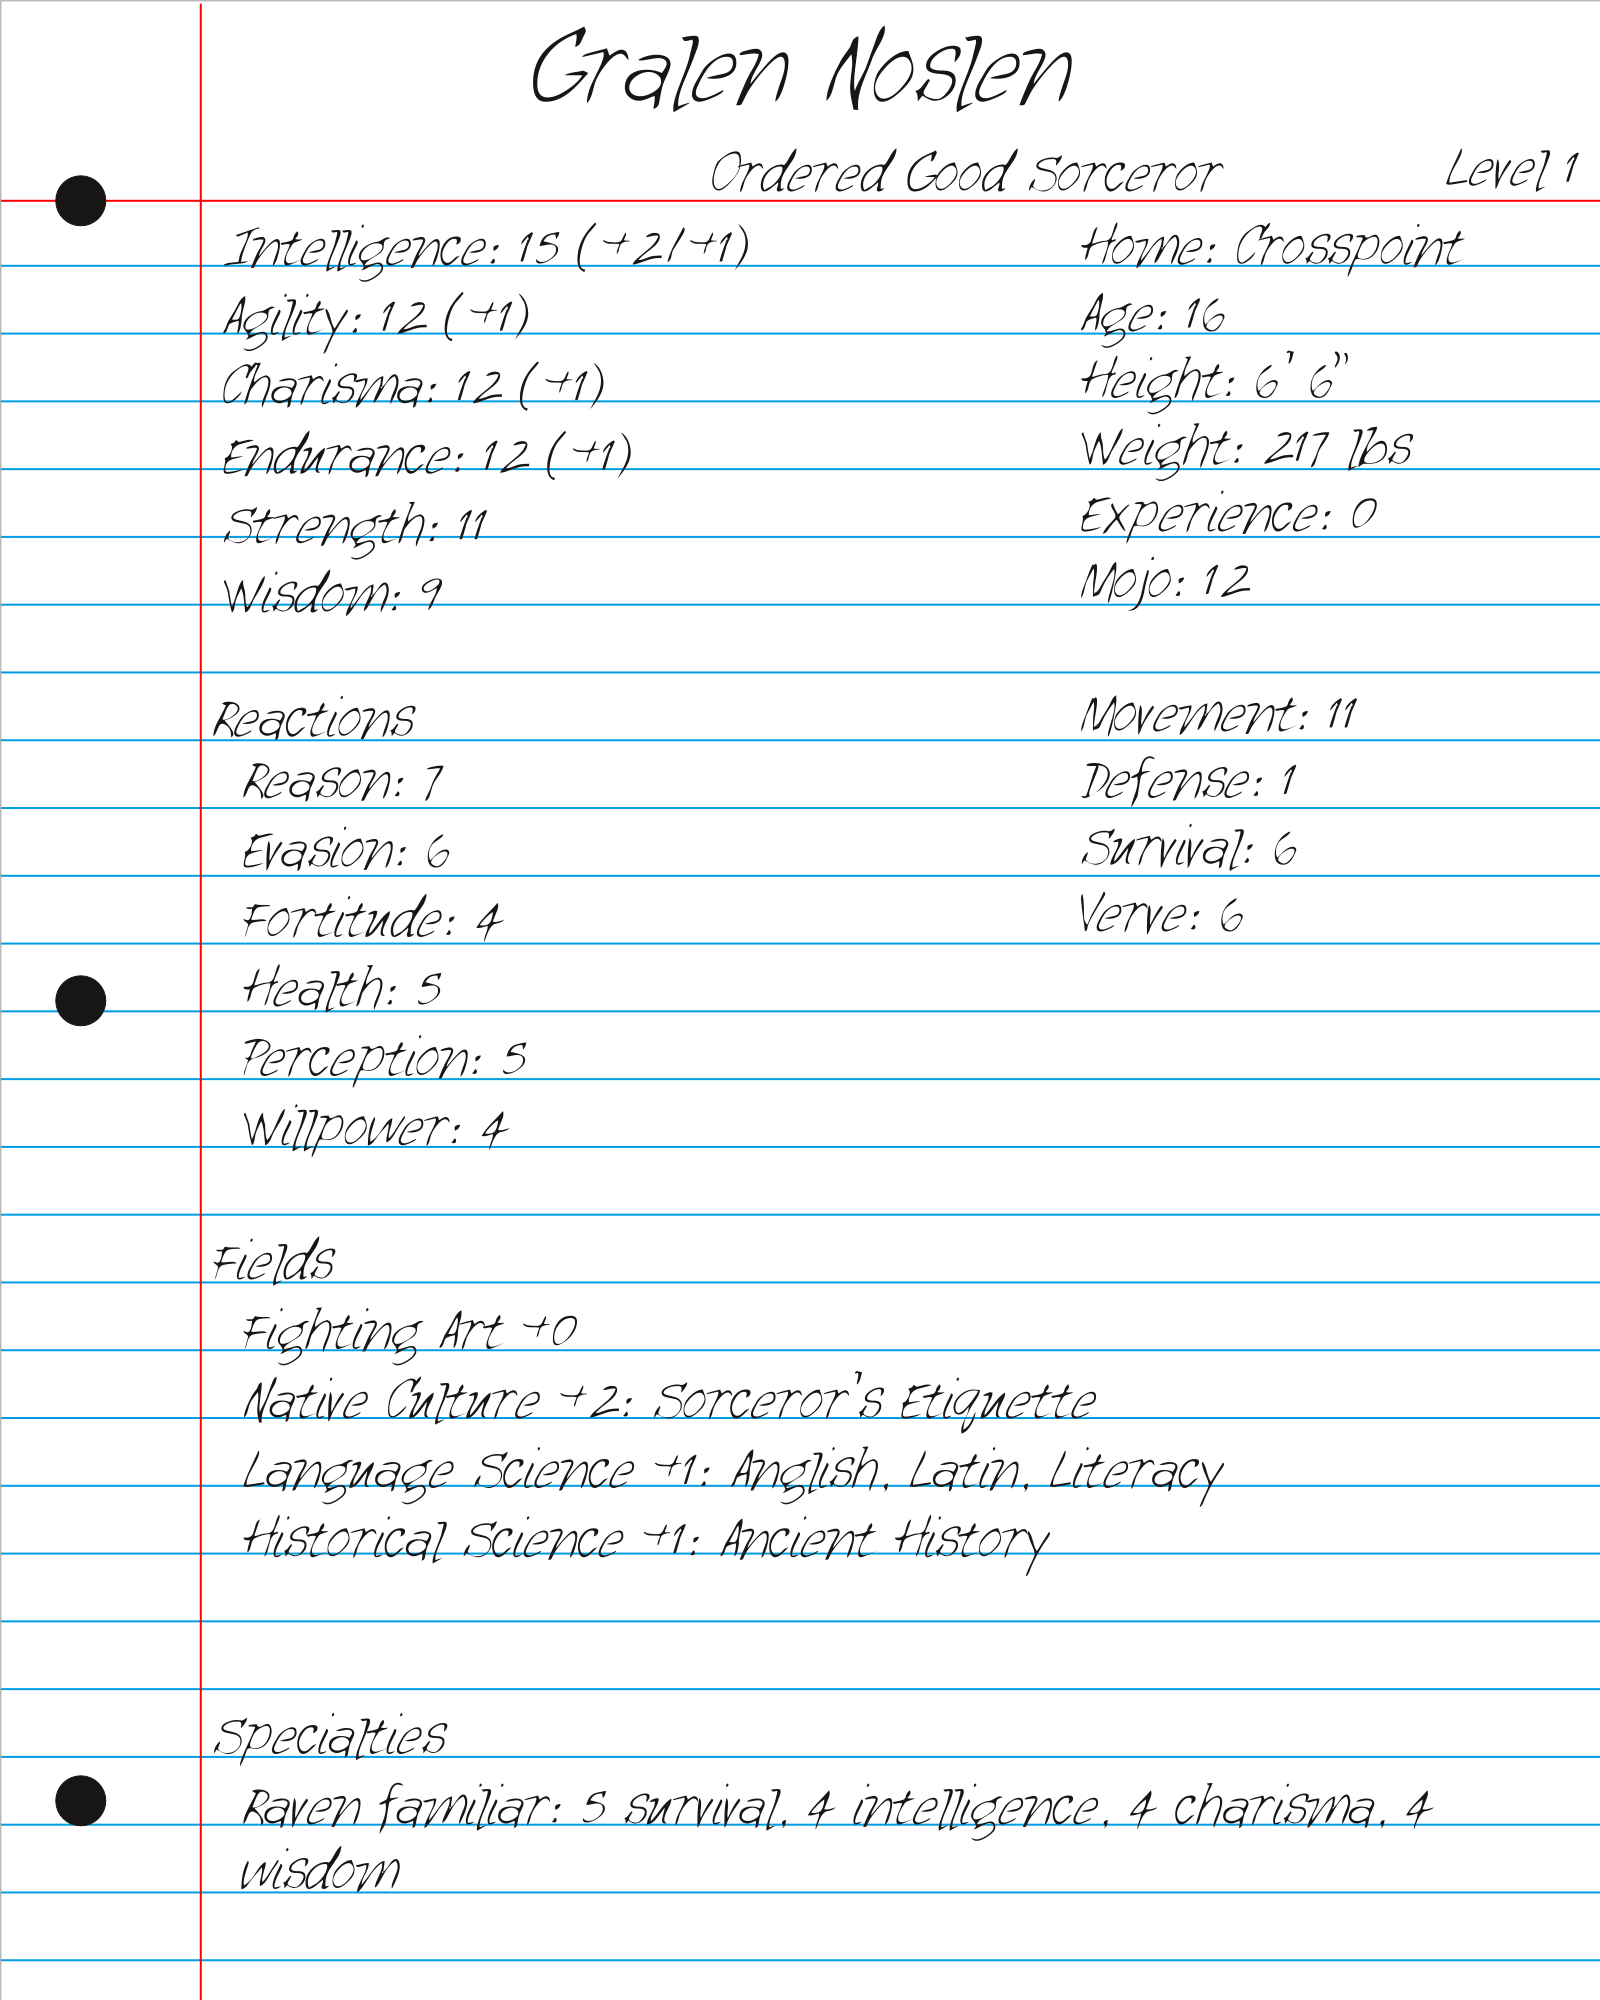 Gralen Noslen
Ordered Good Sorceror
Level 1
Intelligence: 15 (+2/+1)
Agility: 12 (+1)
Charisma: 12 (+1)
Endurance: 12 (+1)
Strength: 11
Wisdom: 9
Home: Crosspoint
Age: 16
Height: 6' 6"
Weight: 217 lbs
Experience: 0
Mojo: 12
Reactions
Reason: 7
Evasion: 6
Fortitude: 4
Health: 5
Perception: 5
Willpower: 4
Movement: 11
Defense: 1
Survival: 6
Verve: 6
Fields
Fighting Art +0
Native Culture +2: Sorceror's Etiquette
Language Science +1: Anglish, Latin, Literacy
Historical Science +1: Ancient History
Specialties
Raven familiar: 5 survival, 4 intelligence, 4 charisma, 4
wisdom